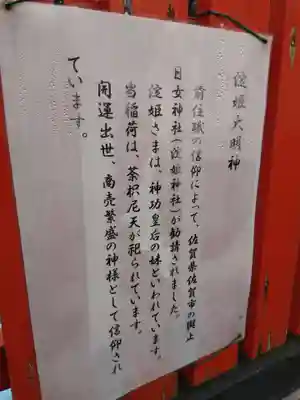 淀姫大明神
前住職の信仰によって、佐賀県佐賀市の與止
日女神社（淀姫神社）が勧請されました。
淀姫さまは、神功皇后の妹といわれています。
当稲荷は、荼枳尼天が祀られています。
開運出世、商売繁盛の神様として信仰され
ています。